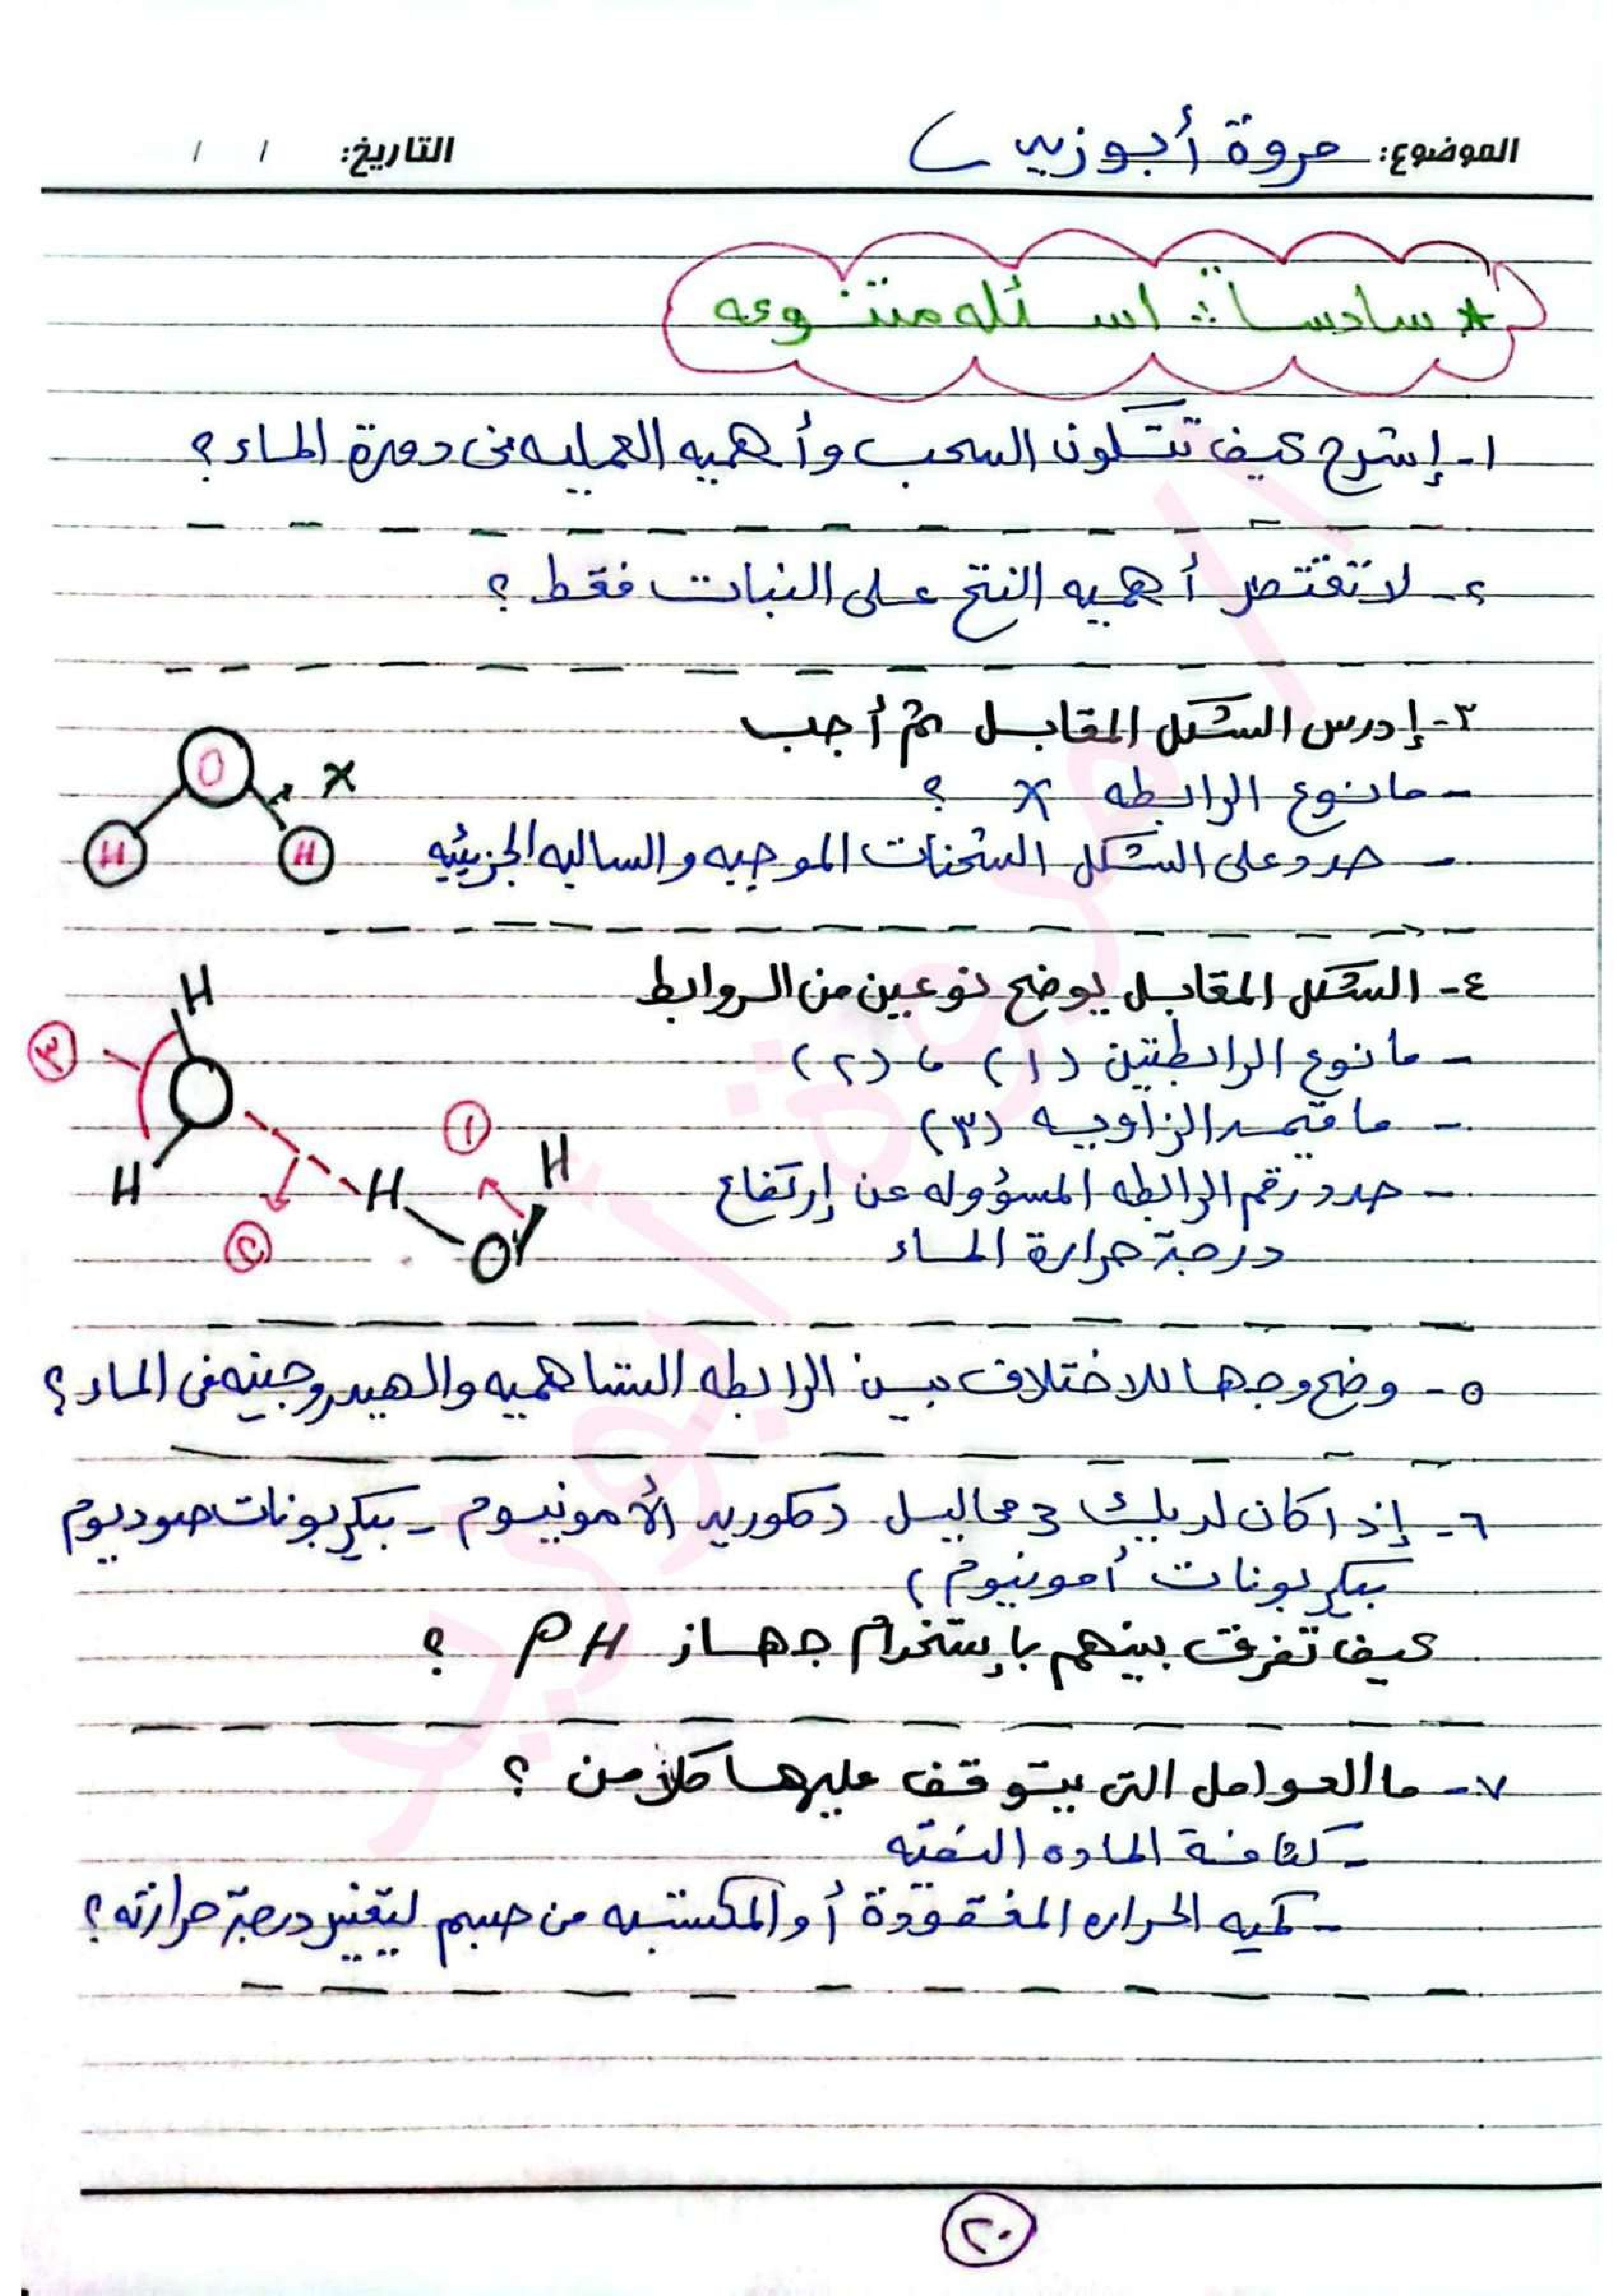 الموضوع: مروة أبوزيد
التاريخ: / /
* سادسا :: اسئله متنوعه
١- إشرح كيف تتكون السحب وأهميه العمليه فى دورة الماء؟
٢- لا تقتصر أهميه النتح على النبات فقط؟
٣- إدرس الشكل المقابل ثم أجب
- مانوع الرابطه X ؟
- حدد على الشكل الشحنات الموجبه والسالبه الجزيئيه
O
X
H
H
٤- الشكل المقابل يوضح نوعين من الروابط
- ما نوع الرابطتين (١) ، (٢)
- ما قيمه الزاويه (٣)
- حدد رقم الرابطه المسؤوله عن إرتفاع
درجة حرارة الماء
H
٣
O
H
١
H
H
O
٢
٥- وضح وجها للاختلاف بين الرابطه التساهميه والهيدروجينيه فى الماء؟
٦- إذا كان لديك 3 محاليل (كلوريد الأمونيوم - بيكربونات صوديوم
بيكربونات أمونيوم)
كيف تفرق بينهم بإستخدام جهاز PH ؟
٧- ما العوامل التى يتوقف عليها كلاً من ؟
- كثافة الماده النقيه
- كميه الحراره المفقودة أو المكتسبه من جسم لتغير درجة حرارته؟
٢٠
مروة أبوزيد